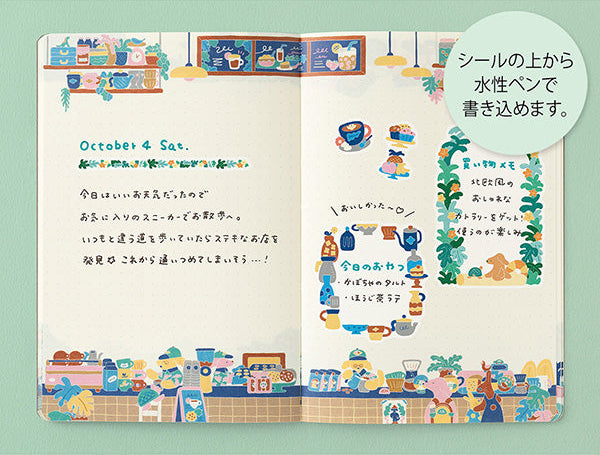 シールの上から
水性ペンで
書き込めます。
October 4 Sat.
今日はいいお天気だったので
お気に入りのスニーカーでお散歩へ。
いつもと違う道を歩いていたらステキなお店を
発見 これから通いつめてしまいそう…!
おいしかった〜♡
今日のおやつ
・かぼちゃのタルト
・ほうじ茶ラテ
買い物メモ
北欧風の
おしゃれな
カトラリーをゲット!
使うのが楽しみ